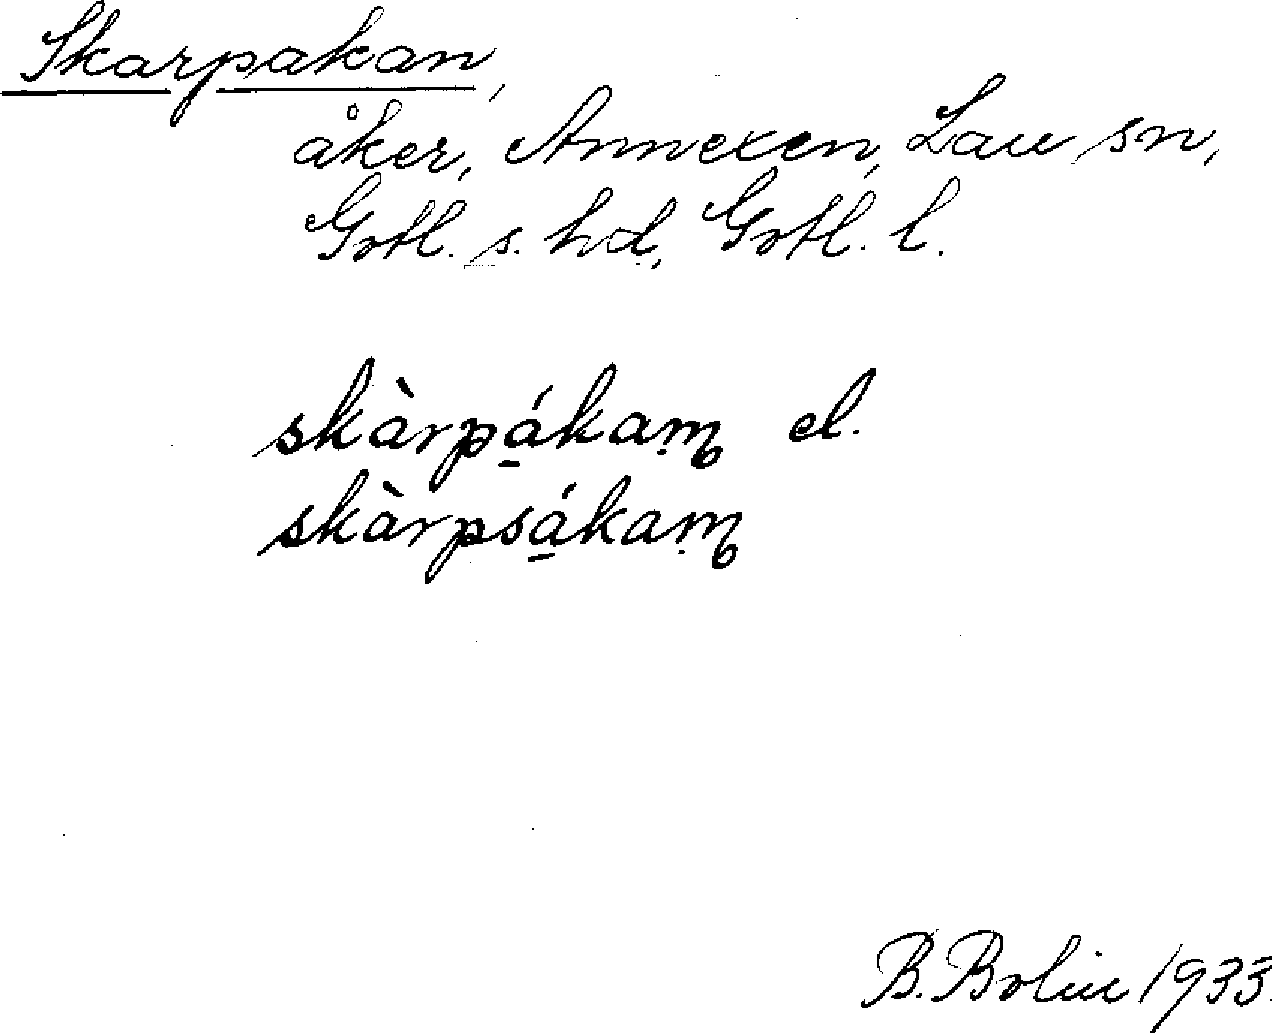 Skarpakan,
åker, Annexen, Lau sn,
Gotl. s. hd, Gotl. l.
skàrpá̱kaṃ el.
skàrpsá̱kaṃ
B. Bolin 1933.